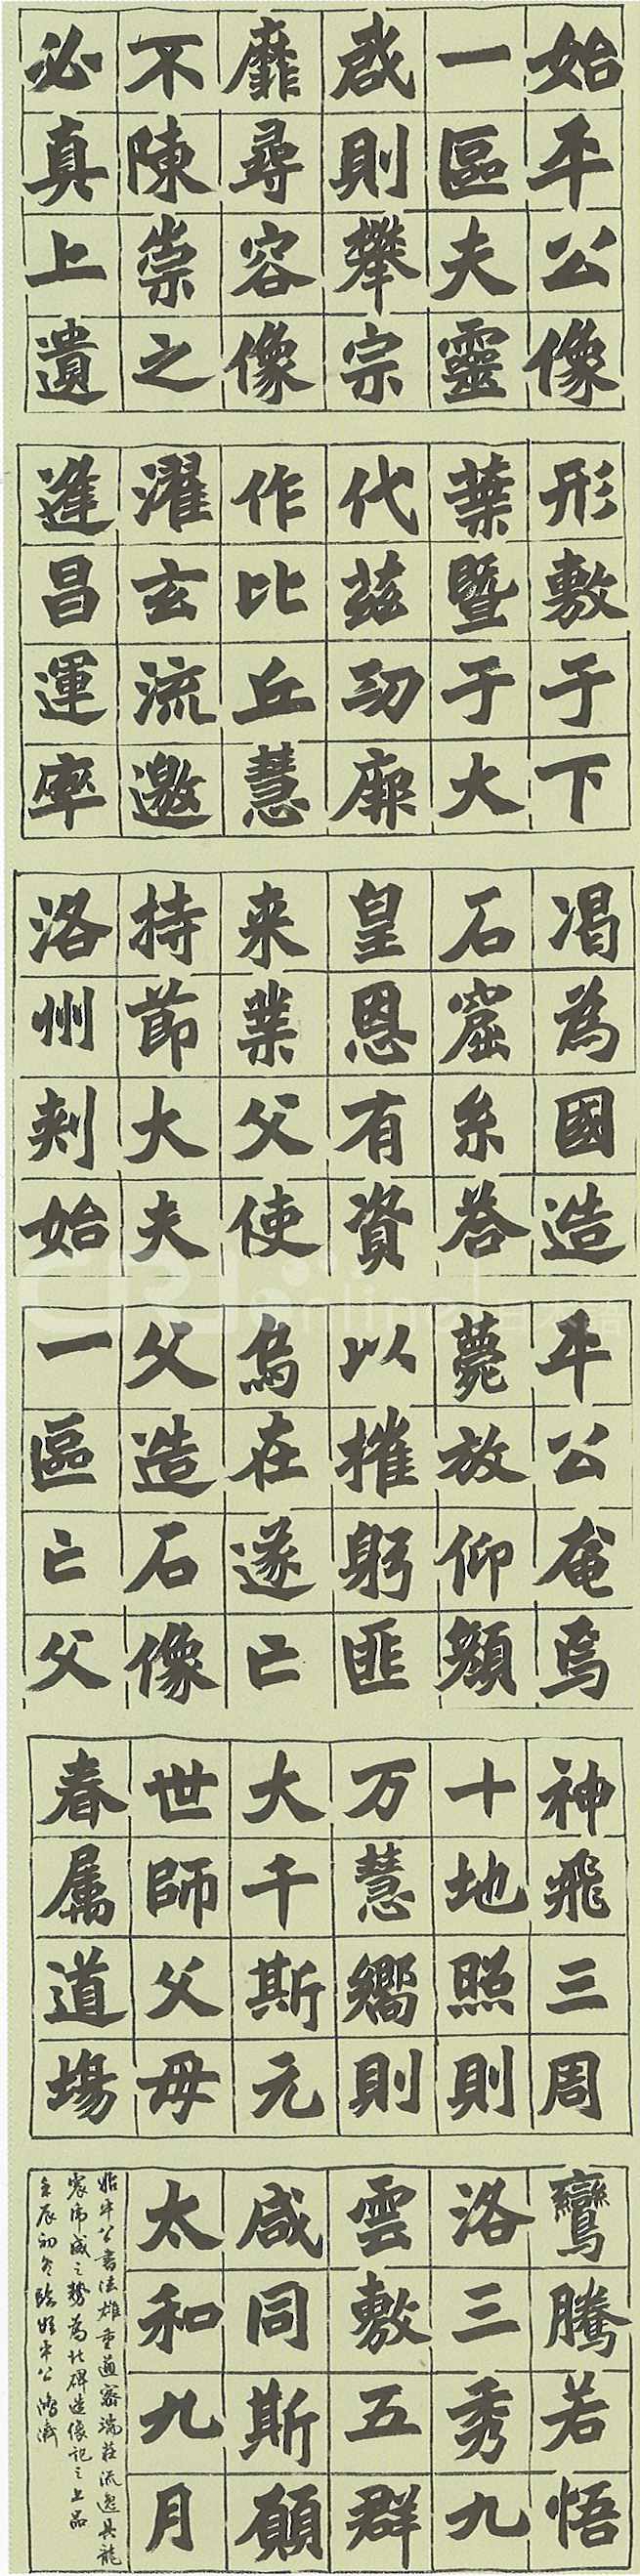 始平公像
一區夫靈
啟則攀宗
靡尋容像
不陳崇之
必真上遺
形敷于下
葉暨于大
代茲功厥
作比丘慧
濯玄流邀
逢昌運率
渴為國造
石窟糸答
皇恩有資
来業父使
持節大夫
洛州刺始
平公奄焉
薨放仰顏
以摧躬匪
烏在遂亡
父造石像
一區亡父
神飛三周
十地照則
万慧嚮則
大千斯元
世師父母
春属道場
鸞騰若悟
洛三秀九
雲敷五群
咸同斯願
太和九月
始平公書法雄重遒密端莊流逸具龍
震虎威之勢為北碑造像記之上品
壬辰初冬臨始平公
CRI online 日本語